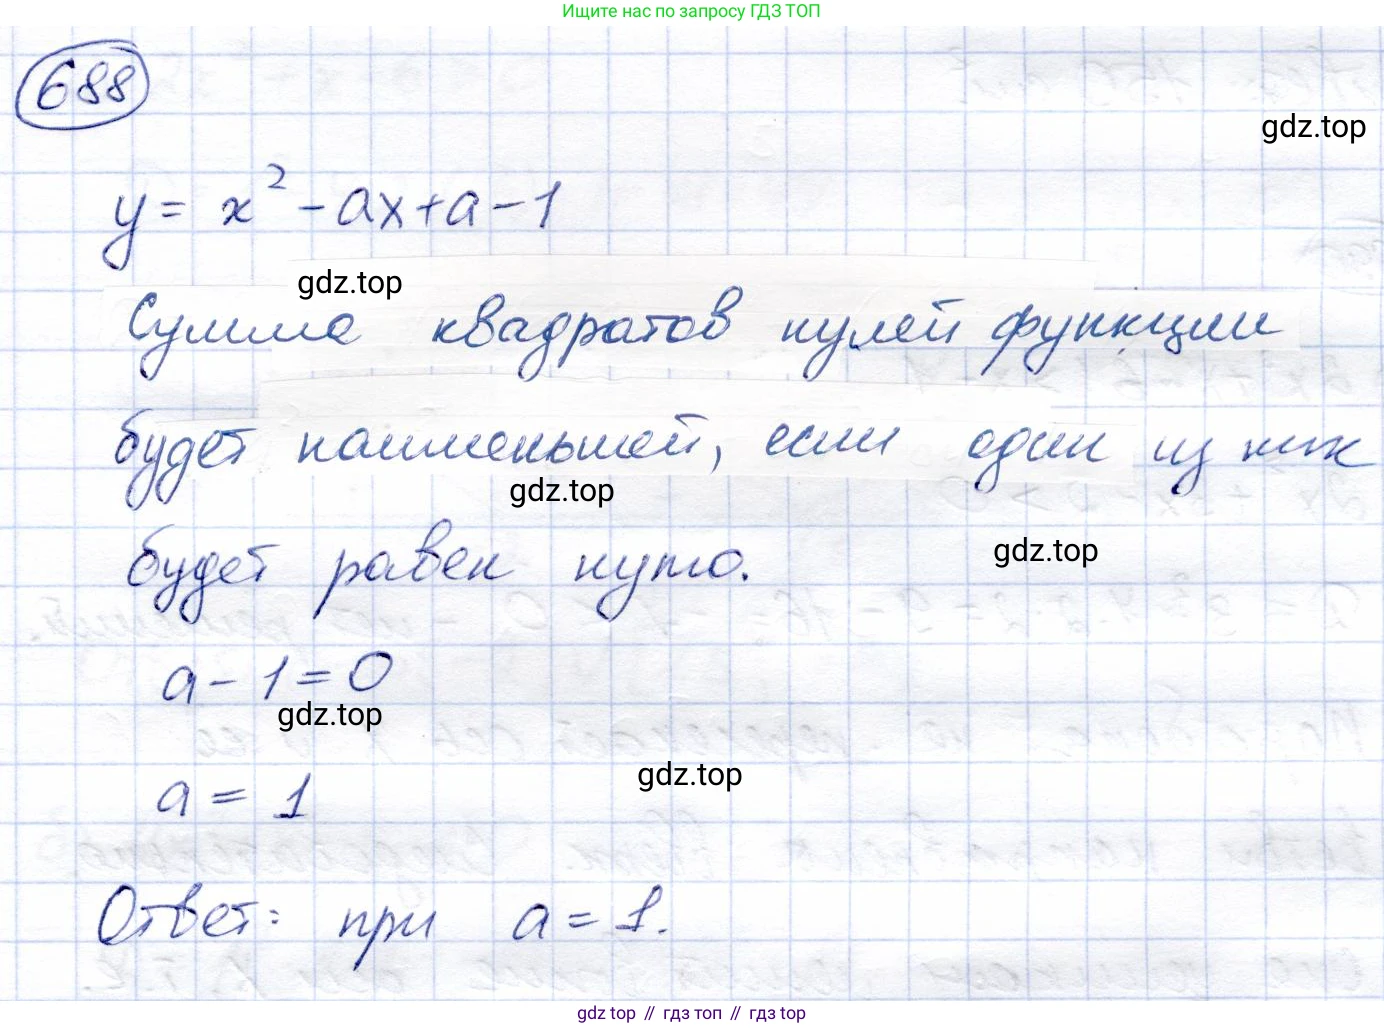 Ищите нас по запросу ГДЗ ТОП
688
gdz.top
y = x² - ax + a - 1
gdz.top
Сумма квадратов нулей функции
будет наименьшей, если один из них
gdz.top
будет равен нулю.
gdz.top
a - 1 = 0
gdz.top
gdz.top
a = 1
Ответ: при a = 1.
gdz top // гдз топ // гдз top